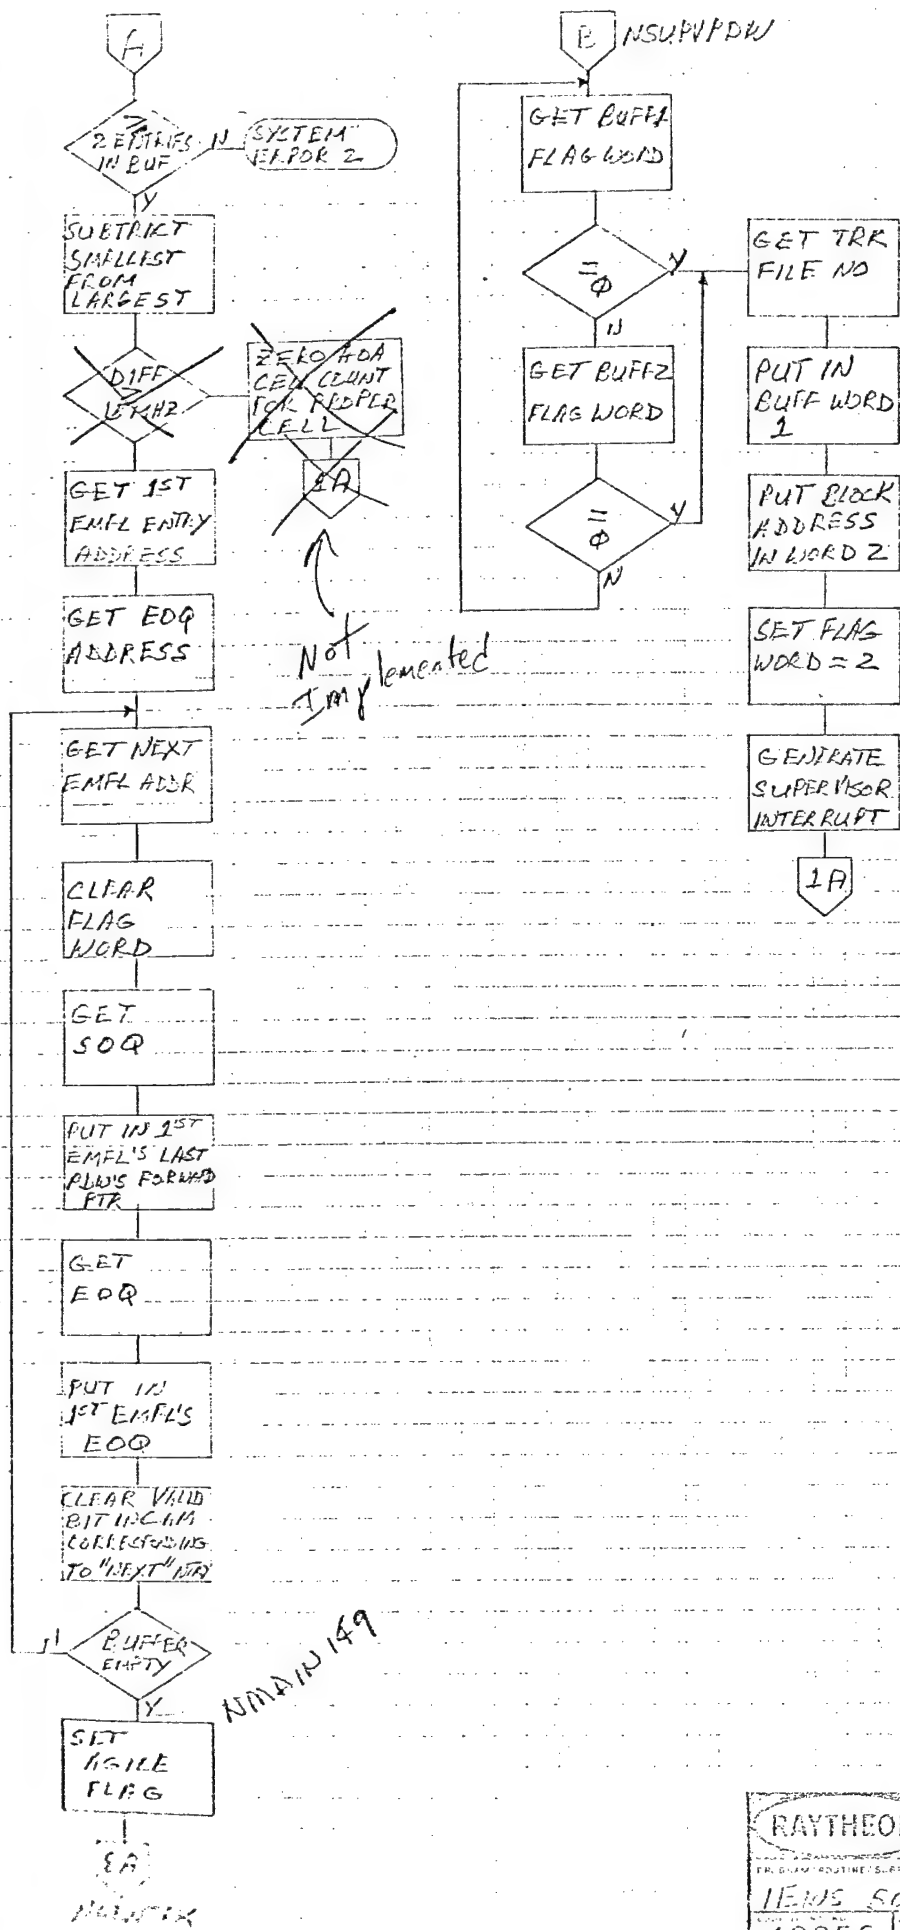 A
≥
2 ENTRIES
IN BUF
N
SYSTEM
ERROR 2
Y
SUBTRACT
SMALLEST
FROM
LARGEST
DIFF
≥
MHZ
ZERO AOA
CELL COUNT
FOR PROPER
CELL
1A
Not
Implemented
GET 1ST
EMFL ENTRY
ADDRESS
GET EOQ
ADDRESS
GET NEXT
EMFL ADDR
CLEAR
FLAG
WORD
GET
SOQ
PUT IN 1ST
EMFL'S LAST
PDW'S FORWRD
PTR
GET
EOQ
PUT IN
1ST EMFL'S
EOQ
CLEAR VALID
BIT IN CAM
CORRESPONDING
TO "NEXT"
BUFFER
EMPTY
N
Y
NMAIN 149
SET
AGILE
FLAG
B
NSUPVPDW
GET BUFF1
FLAG WORD
=
Ø
Y
N
GET BUFF2
FLAG WORD
=
Ø
Y
N
GET TRK
FILE NO
PUT IN
BUFF WORD
1
PUT BLOCK
ADDRESS
IN WORD 2
SET FLAG
WORD = 2
GENERATE
SUPERVISOR
INTERRUPT
1A
RAYTHEO